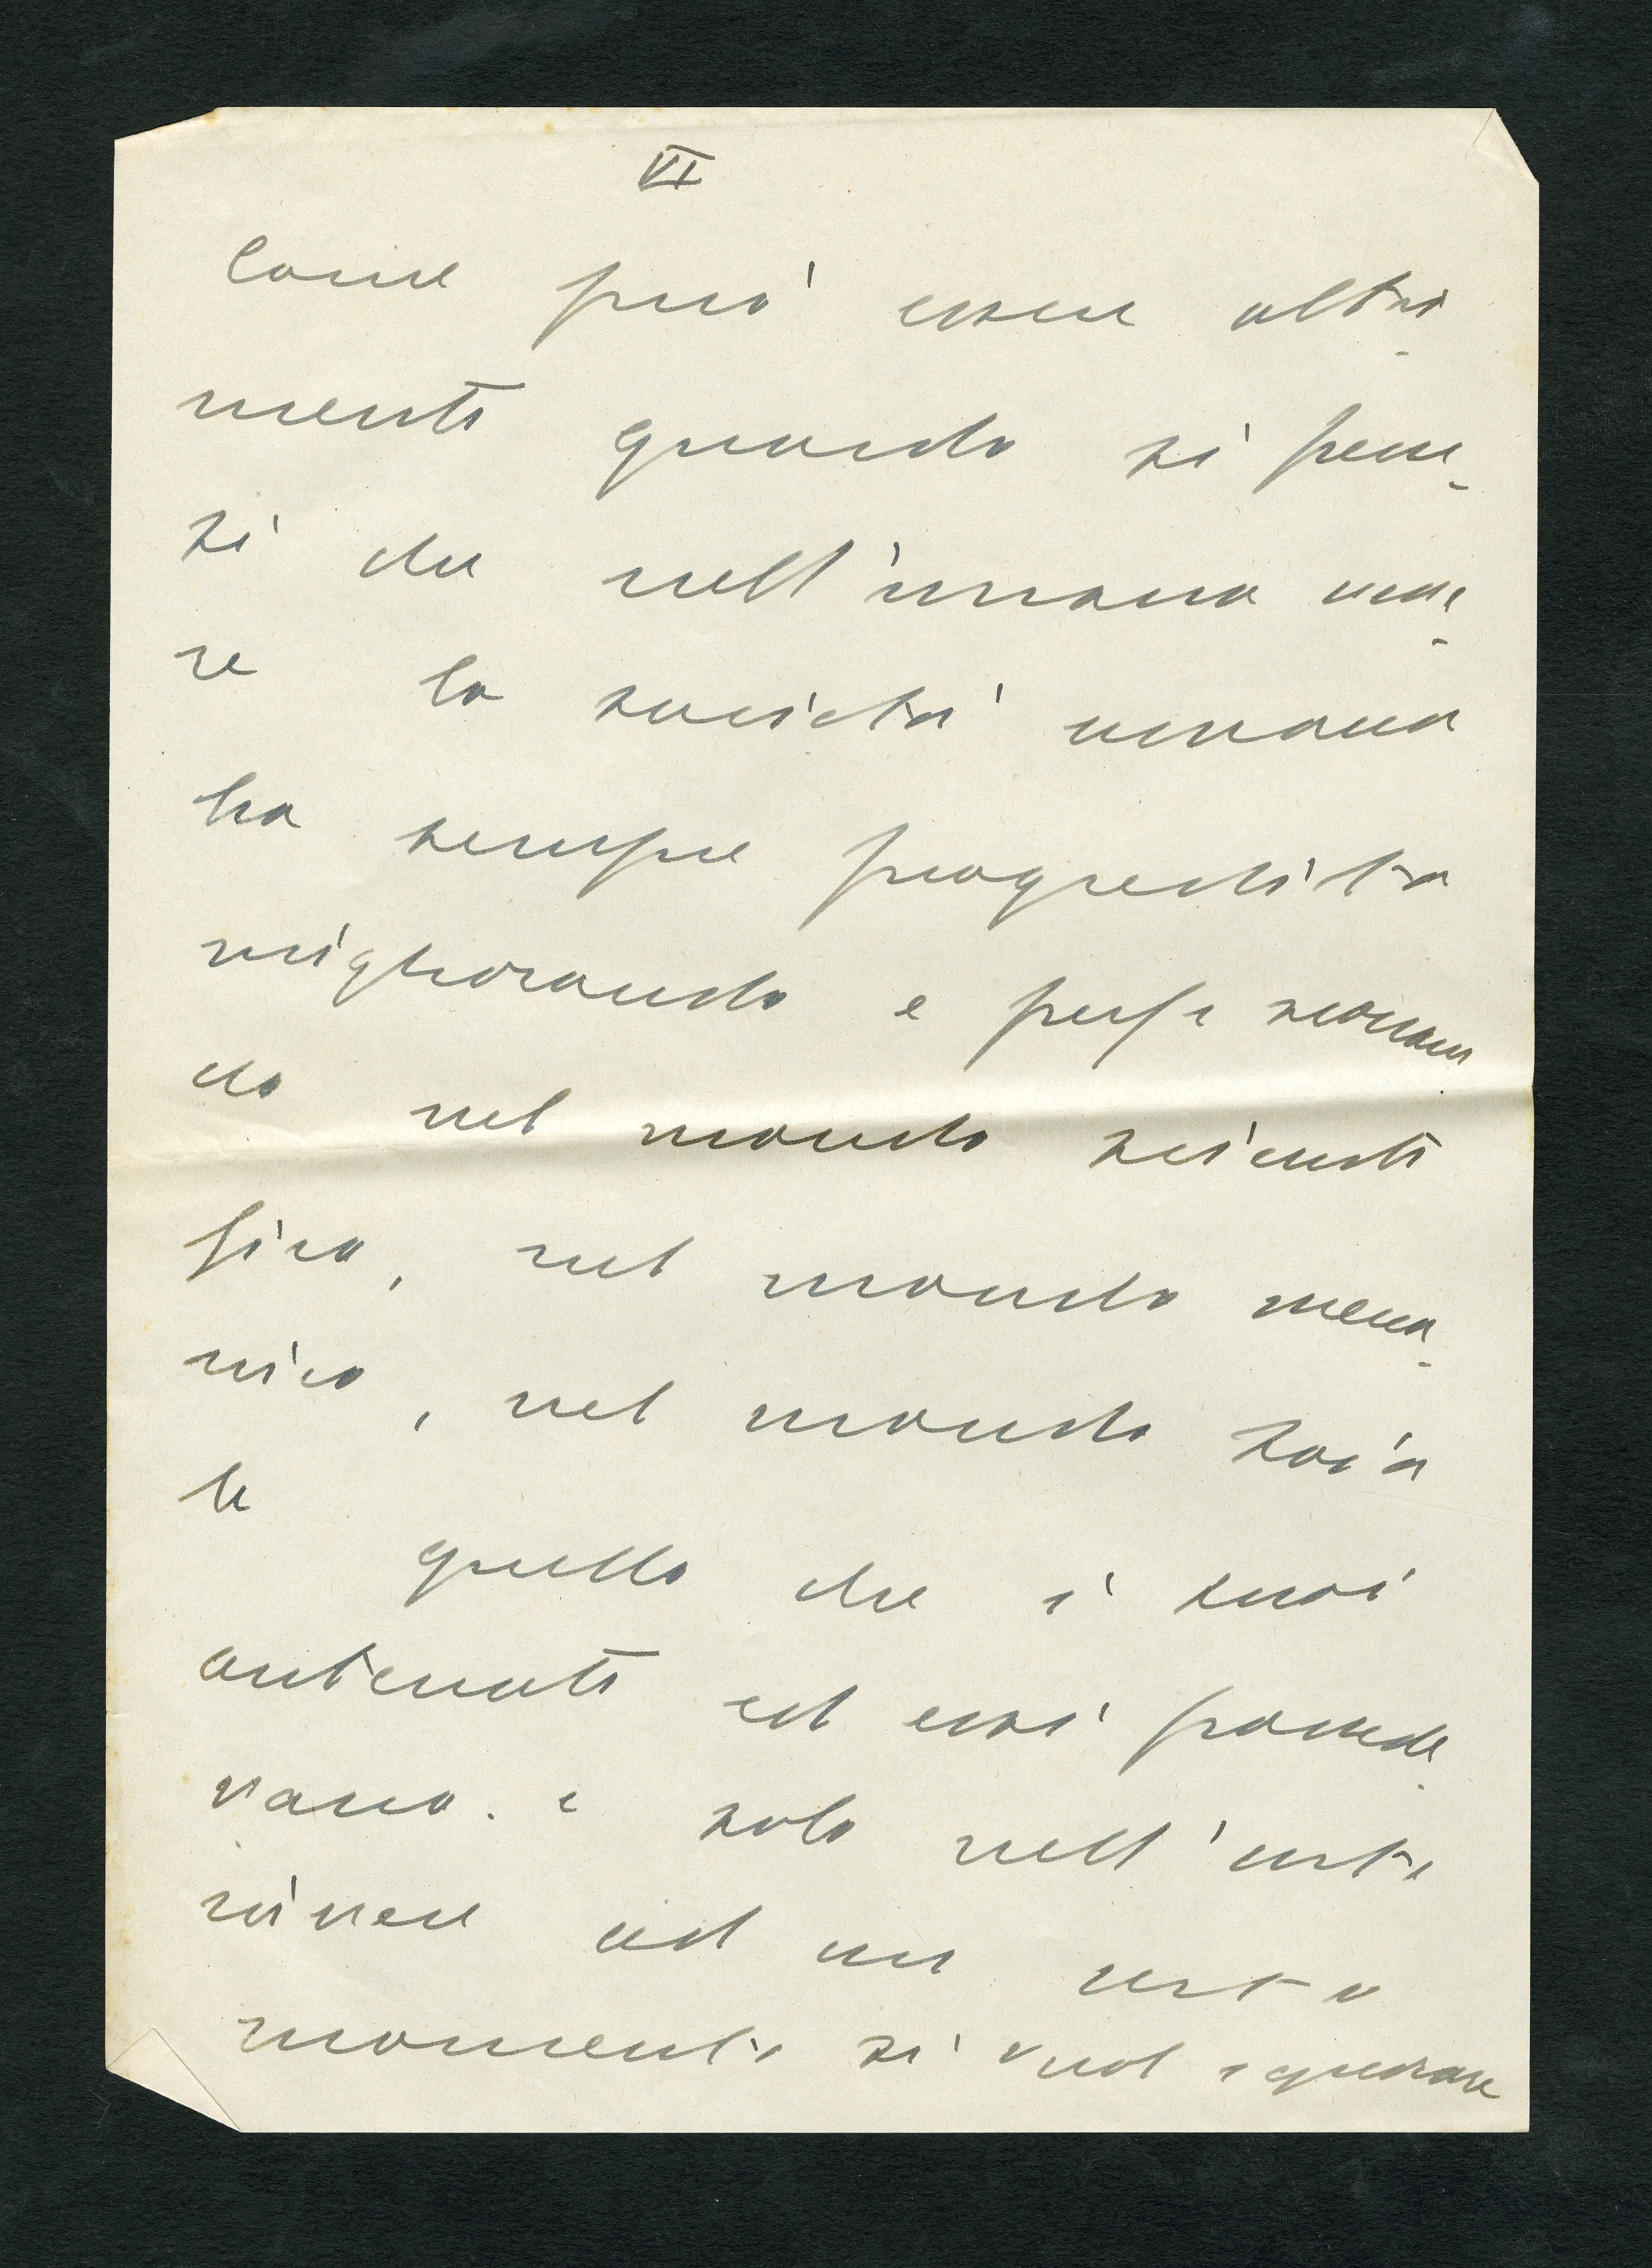 VI
Come può essere altri-
menti quando si pen-
si che nell'umana
re la società umana
ha sempre progredito
migliorando e perfezionan
do nel mondo scienti
fico, nel mondo mecca-
nico, nel mondo socia
le quello che i suoi
antenati ed essi possede-
vano. e solo nell'inte
riore ad un certo
momento si vuol ignorare